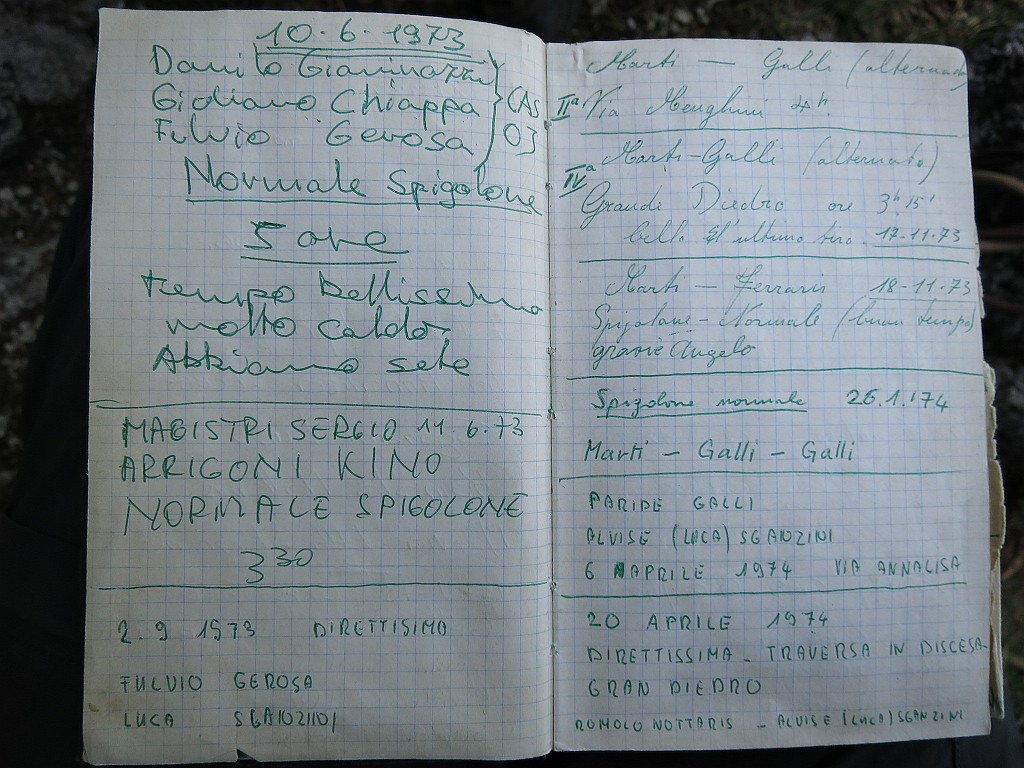 10.6.1973
Danilo Gianinazzi
Giuliano Chiappa
Fulvio Gerosa
CAS
OJ
Normale Spigolone
5 ore
tempo bellissimo
molto caldo,
Abbiamo sete
MAGISTRI SERGIO 11.6.73
ARRIGONI KINO
NORMALE SPIGOLONE
3 30
2.9 1973 DIRETTISIMA
FULVIO GEROSA
LUCA SGANZINI
Marti — Galli (alternato)
IIIª Via Menghini 4h.
IVª Marti-Galli (alternato)
Grande Diedro ore 3h 15'
bello 17.11.73
Marti — Ferraris 18-11.73
Spigolone-Normale (buon tempo)
grazie Angelo
Spigolone normale 26.1.'74
Marti — Galli — Galli
PARIDE GALLI
ALVISE (LUCA) SGANZINI
6 APRILE 1974 VIA ANNALISA
20 APRILE 1974
DIRETTISSIMA - TRAVERSA IN DISCESA-
GRAN DIEDRO
ROMOLO NOTTARIS - ALVISE (LUCA) SGANZINI